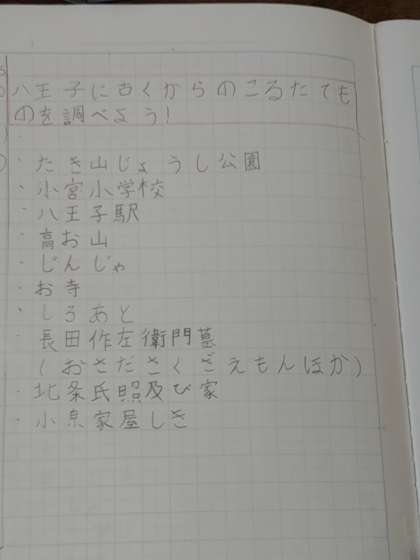 八王子に古くからのこるたても
のを調べよう!
・たき山じょうし公園
・小宮小学校
・八王子駅
・高お山
・じんじゃ
・お寺
・しろあと
・長田作左衛門墓
(おさださくざえもんほか)
・北条氏照及び家
・小泉家屋しき